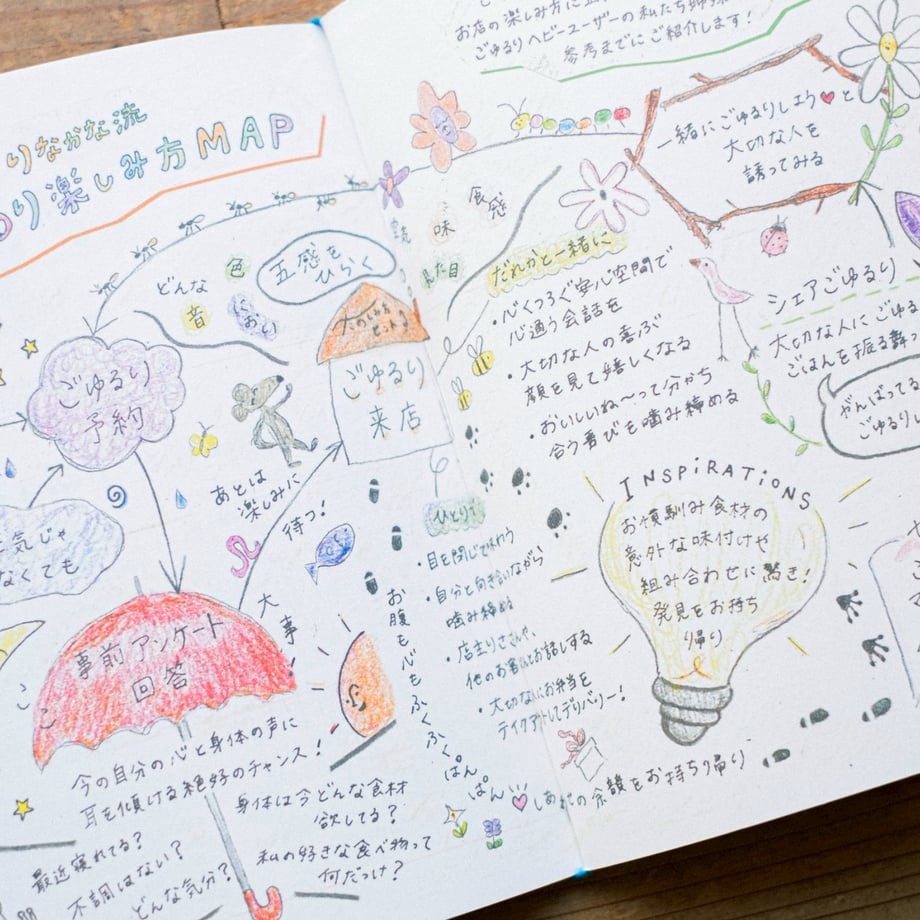 りなかな流
り楽しみ方MAP
ごゆるり
予約
気じゃ
なくても
事前アンケート
回答
今の自分の心と身体の声に
耳を傾ける絶好のチャンス!
最近寝れてる?
不調はない?
どんな気分?
身体は今どんな食材
欲してる?
私の好きな食べ物って
何だっけ?
大事!
あとは
楽しみに
待つ!
どんな
色
音
におい
五感を
ひらく
味
食感
見た目
ごゆるり
来店
お腹も心もふくふく。
ぱんぱん
ひとりで
・目を閉じて味わう
・自分と向き合いながら
噛み締め
他のお客さんとお話しする
・大切な人にお弁当を
テイクアウトしてデリバリー!
お店の楽しみ方に
ごゆるりヘビーユーザーの私たち姉妹
参考までにご紹介します!
だれかと一緒に
・心くつろぐ安心空間で
心通う会話を
・大切な人の喜ぶ
顔を見て嬉しくなる
・おいしいね〜って分かち
合う喜びを噛み締める
一緒にごゆるりしよう♥と
大切な人を
誘ってみる
シェアごゆるり
大切な人にごゆる
ごはんを振る舞っ
がんばってる
ごゆるり
INSPIRATIONS
お馴染み食材の
意外な味付けや
組み合わせに驚き!
発見をお持ち
帰り
しあわせの余韻をお持ち帰り